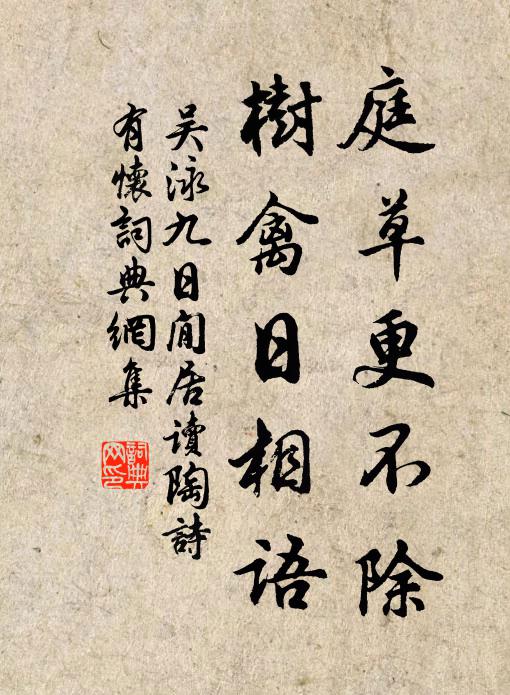 庭草更不除
樹禽日相語
吳泳九日閒居讀陶詩
有懷詞典網集
詞典网印